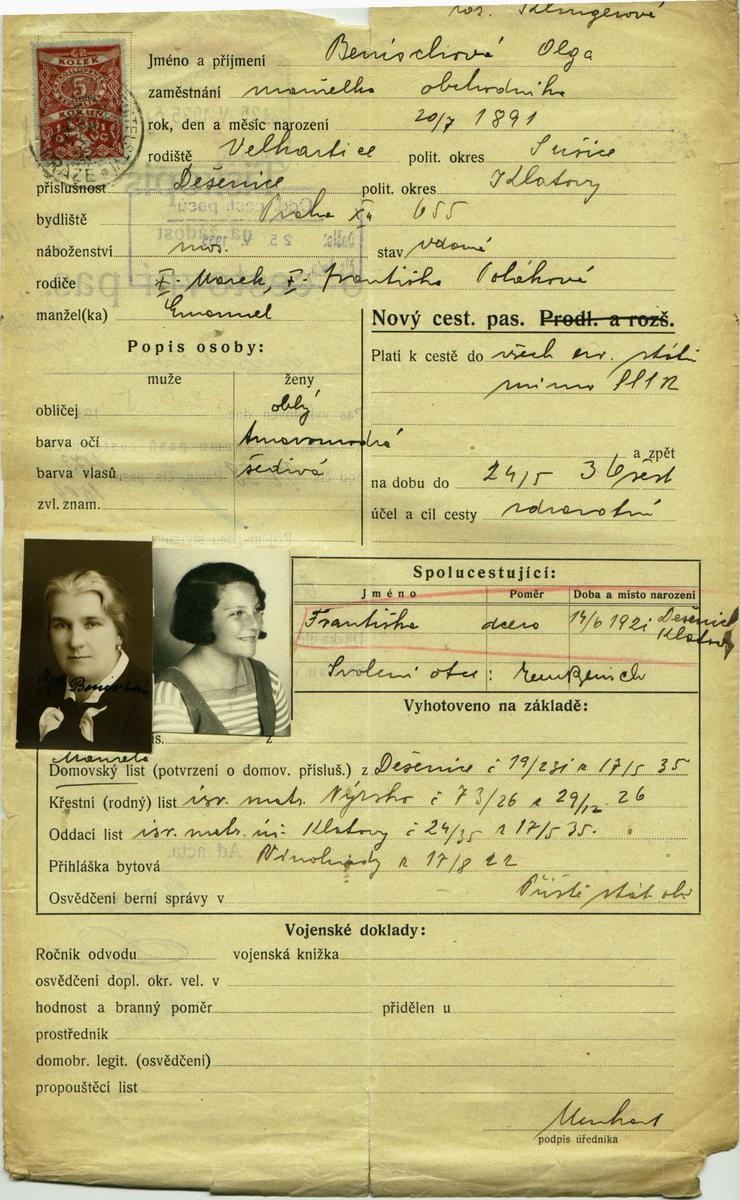 roz. Klingerová
Jméno a příjmení Benischová Olga
zaměstnání manželka obchodníka
rok, den a měsíc narození 20/7 1891
rodiště Velhartice polit. okres Sušice
příslušnost Dešenice polit. okres Klatovy
bydliště Praha XII 655
náboženství stav vdaná
rodiče Marek, Františka Polákové
manžel(ka) Emanuel
Nový cest. pas. Prodl. a rozš.
Popis osoby:
muže ženy
obličej oblý
barva očí tmavomodrá
barva vlasů šedivá
zvl. znam.
Platí k cestě do všech evr. států
mimo SSSR
a zpět
na dobu do 24/5 36
účel a cíl cesty zdravotní
Spolucestující:
Jméno Poměr Doba a místo narození
Františka dcera 14/6 1921 Dešenice
Klatovy
Svolení otce: Benisch
Vyhotoveno na základě:
Domovský list (potvrzení o domov. přísluš.) z Dešenice č 19/231 z 17/5 35
Křestní (rodný) list isr. matr. Nýrsko č 73/26 z 29/12 26
Oddací list isr. matr. úř. Klatovy č 24/35 z 17/5 35.
Přihláška bytová Vinohrady z 17/8 22
Osvědčení berní správy v
Vojenské doklady:
Ročník odvodu vojenská knížka
osvědčení dopl. okr. vel. v
hodnost a branný poměr přidělen u
prostředník
domobr. legit. (osvědčení)
propouštěcí list
podpis úředníka
KOLEK
5